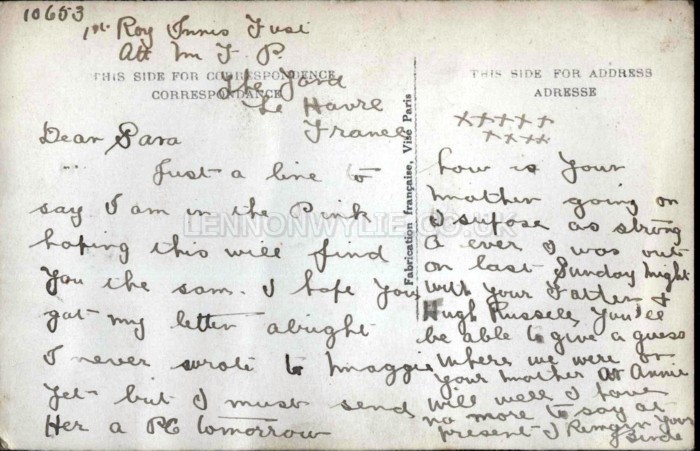 10653
1st Roy Innis Fusl
Att M F P.
THIS SIDE FOR CORRESPONDENCE
CORRESPONDANCE
The Yard
Le Havre
France
Dear Sara
Just a line to
say I am in the Pink
hoping this will find
you the sam. I hope you
got my letter alright
I never wrote to Maggie
yet but I must send
Her a PC tomorrow
Fabrication française, Visé Paris
THIS SIDE FOR ADDRESS
ADRESSE
x x x x x
x x x x
how is your
mother going on
I supose as strong
a ever I was out
on last Sunday night
with your Father &
Hugh Russell, you'll
be able to give a guess
where we were or
your mother Att Annie
will well I have
no more to say at
present I Remain your
LENNONWYLIE.CO.UK